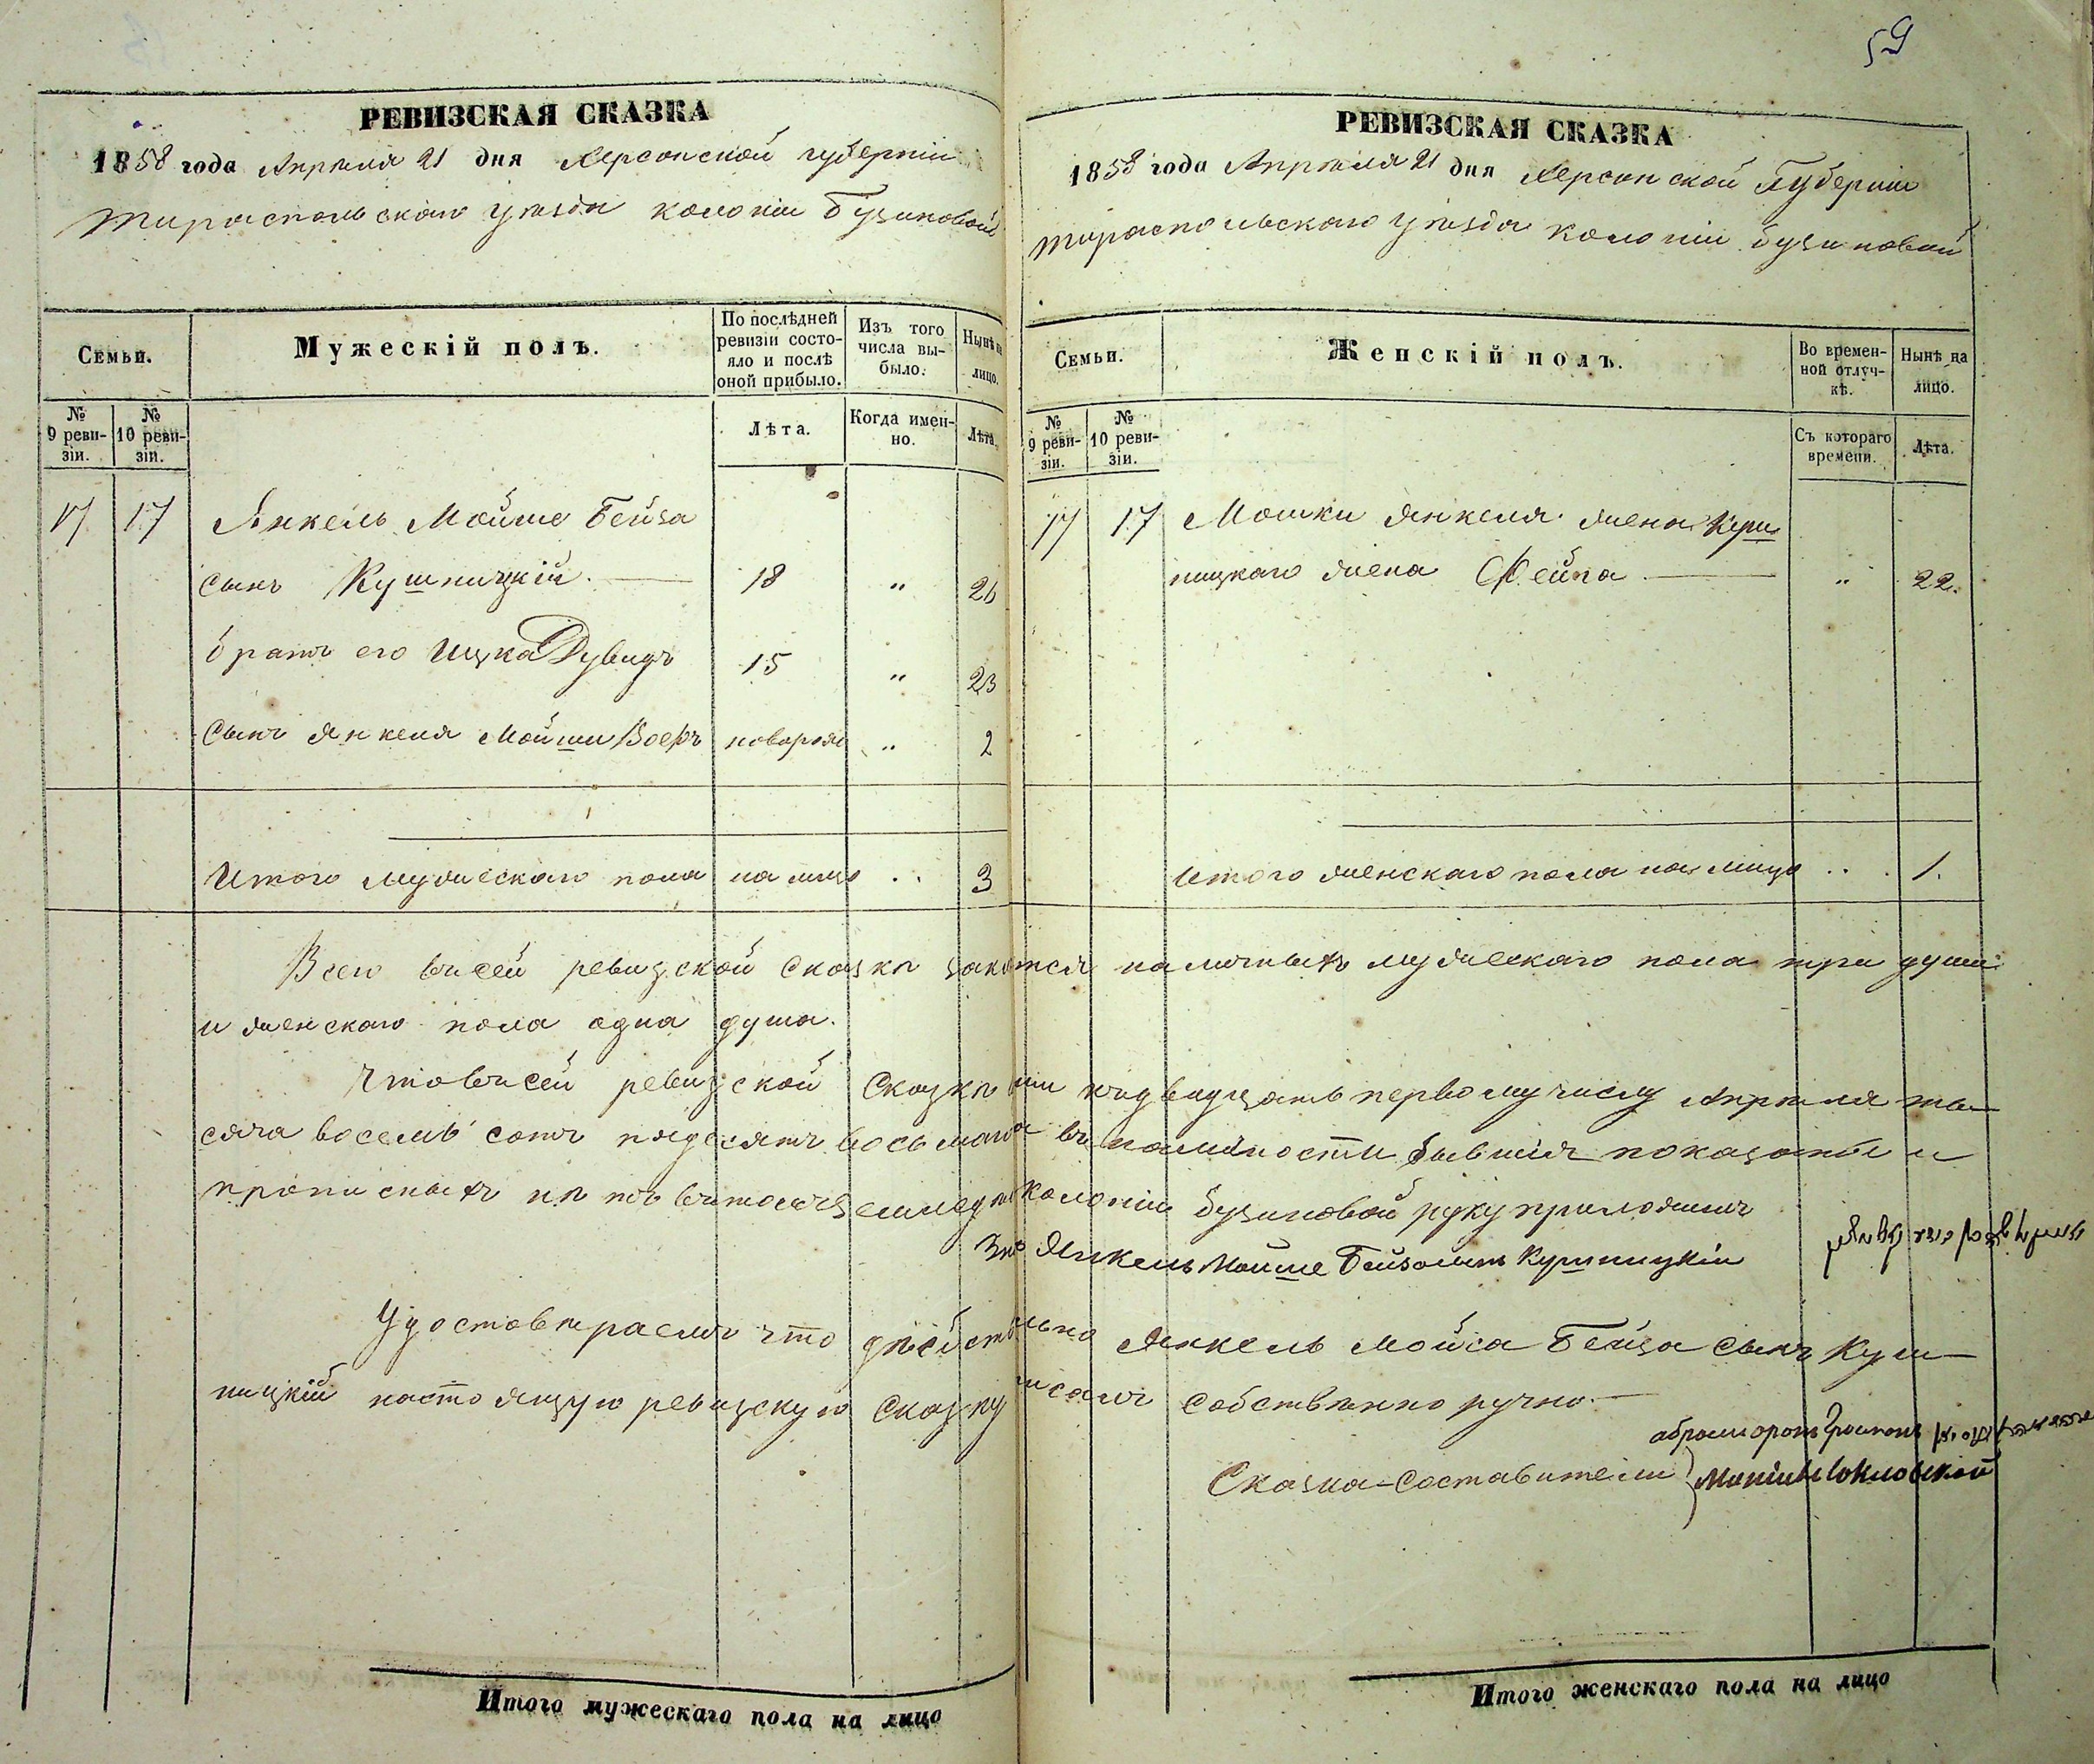 59
РЕВИЗСКАЯ СКАЗКА
1858 года Апрѣля 21 дня Херсонской губерніи
Тираспольскаго уѣзда колоніи Бузиновой
Семьи.
Мужескій полъ.
По послѣдней ревизіи состояло и послѣ оной прибыло.
Изъ того числа выбыло.
Нынѣ на лицо.
№ 9 ревизіи.
№ 10 ревизіи.
Лѣта.
Когда именно.
Лѣта.
17 17 Янкель Мойше Бейза
сынъ Кушницкій. 18 " 26
братъ его Ицка Дувидъ 15 " 23
Сынъ Янкеля Мойши новорож " 2
Итого мужескаго пола на лицо . . 3
РЕВИЗСКАЯ СКАЗКА
1858 года Апрѣля 21 дня Херсонской Губерніи
Тираспольскаго уѣзда колоніи бузиновой
Семьи.
Женскій полъ.
Во временной отлучкѣ.
Нынѣ на лицо.
№ 9 ревизіи.
№ 10 ревизіи.
Съ котораго времени.
Лѣта.
17 17 Мошки Янкеля жена Куш
ницкаго жена Фейга " 22.
Итого женскаго пола на лицо . . . 1.
Всего въ сей ревизской Сказкѣ наличныхъ мужескаго пола три души
и женскаго пола одна душа.
Что въ сей ревизской Сказкѣ къ двадцать первому числу Апрѣля ты-
сяча восемь сотъ пядесятъ восьмаго въ наличности бывшія показаны и
прописныхъ нѣтъ въ томъ колоніи бузиновой руку приложилъ
Янкель Мойше Бейзовичъ Кушницкій
Удостовѣраемъ что дѣйствительно Янкель Мойса Бейза сынъ Куш-
ницкій настоящую ревизскую Сказку собственно ручно.
Сказка-составители
Итого мужескаго пола на лицо
Итого женскаго пола на лицо